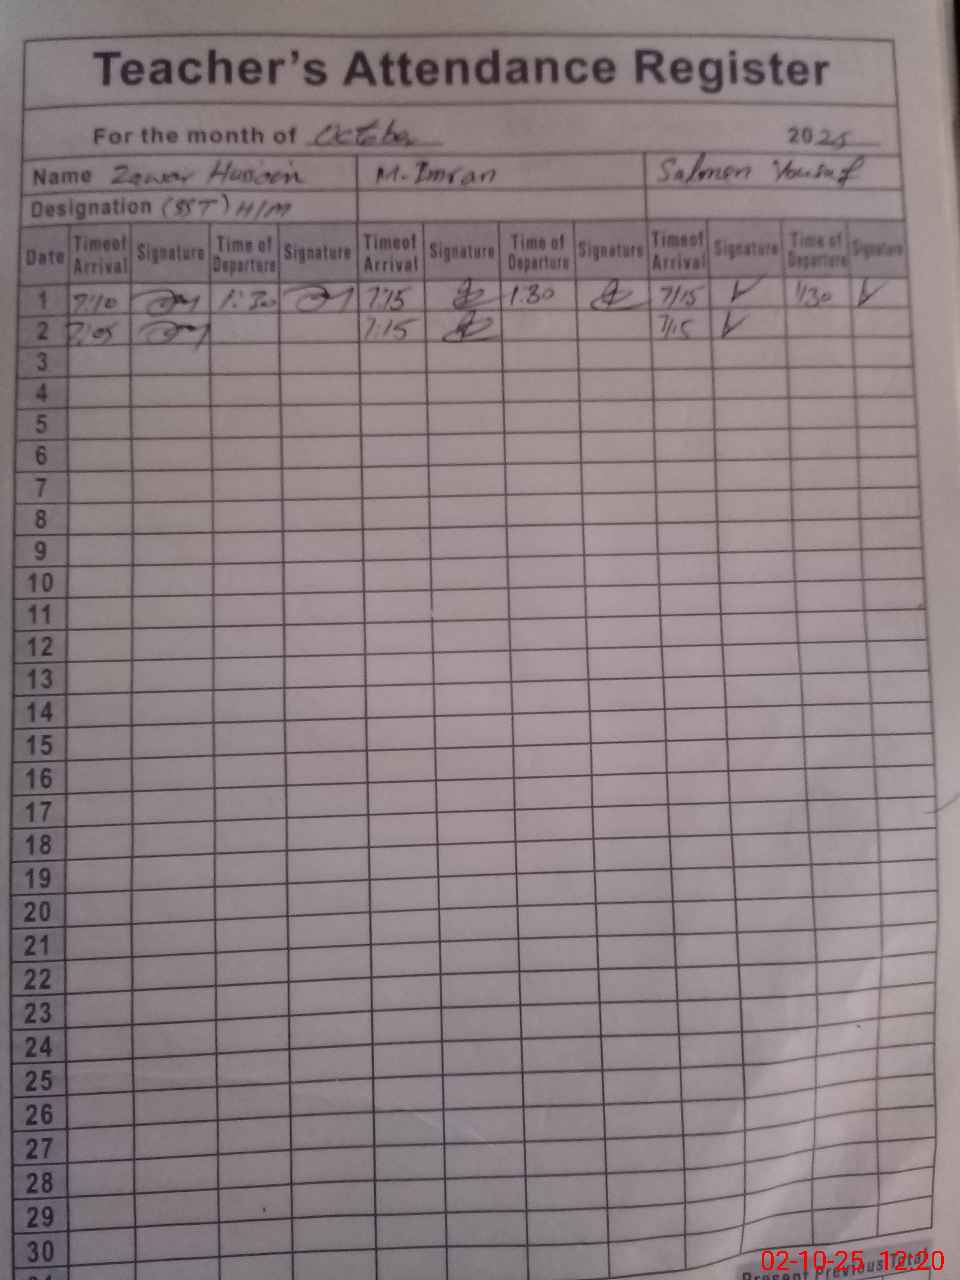 Teacher's Attendance Register
For the month of October 2025
Name Zawar Hussain M. Imran Salman Yousaf
Designation (SST) H/M
Date Timeof Arrival Signature Time of Departure Signature Timeof Arrival Signature Time of Departure Signature Timeof Arrival Signature Time of Departure Signature
1 7:10 1:30 7:15 1:30 7/15 1/30
2 7:05 7:15 7/15
3
4
5
6
7
8
9
10
11
12
13
14
15
16
17
18
19
20
21
22
23
24
25
26
27
28
29
30
Present Previous Total
02-10-25 12:20